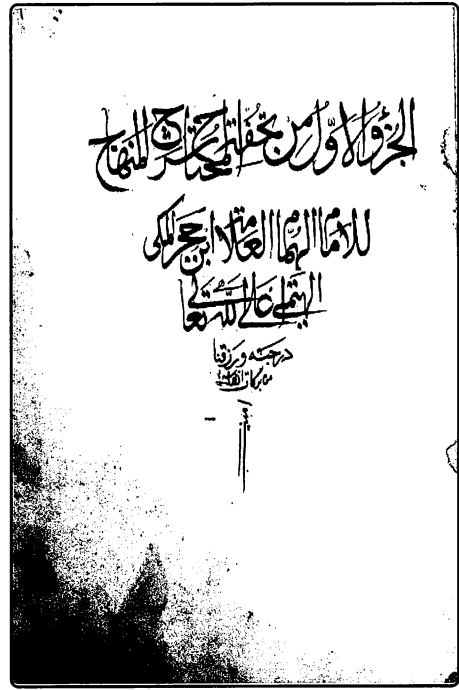 الجزؤ الاول من تحفة المحتاج شرح المنهاج
للامام الهمام العلامة ابن حجر المكى
الهيتمى اعلى الله تعالى
درجته ورزقنا
من بركات انفاسه
امين